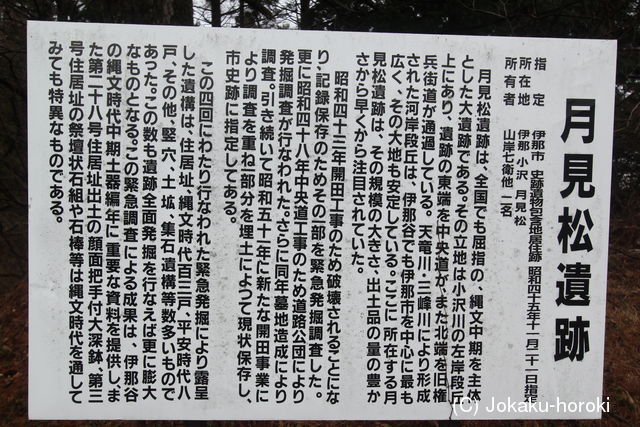 月見松遺跡
指定 伊那市 史跡遺物包含地居住跡 昭和四十五年十一月二十一日指定
所在地 伊那 小沢 月見松
所有者 山岸七衛他一名
月見松遺跡は、全国でも屈指の、縄文中期を主体
とした大遺跡である。その立地は小沢川の左岸段丘
上にあり、遺跡の東端を中央道が、また北端を旧権
兵街道が通過している。天竜川・三峰川により形成
された河岸段丘は、伊那谷でも伊那市を中心に最も
広く、その大地も安定している。ここに所在する月
見松遺跡は、その規模の大きさ、出土品の量の豊か
さから早くから注目されていた。
昭和四十三年開田工事のため破壊されることにな
り、記録保存のためその一部を緊急発掘調査した。
更に昭和四十八年中央道工事のため道路公団により
発掘調査が行なわれた。さらに同年墓地造成により
調査。引き続いて昭和五十一年に新たな開田事業に
より調査を重ね一部分を埋土によつて現状保存し、
市史跡に指定してある。
この四回にわたり行なわれた緊急発掘により露呈
した遺構は、住居址、縄文時代百三戸、平安時代八
戸、その他、竪穴、土壙、集石、遺構等数多いもので
あった。この数も遺跡全面発掘を行なえば更に膨大
なものとなる。この緊急調査による成果は、伊那谷
の縄文時代中期土器編年に重要な資料を提供しま
た第二十八号住居址出土の顔面把手付大深鉢、第三
号住居址の祭壇状石組や石棒等は縄文時代を通して
みても特異なものである。
(C) Jokaku-horoki